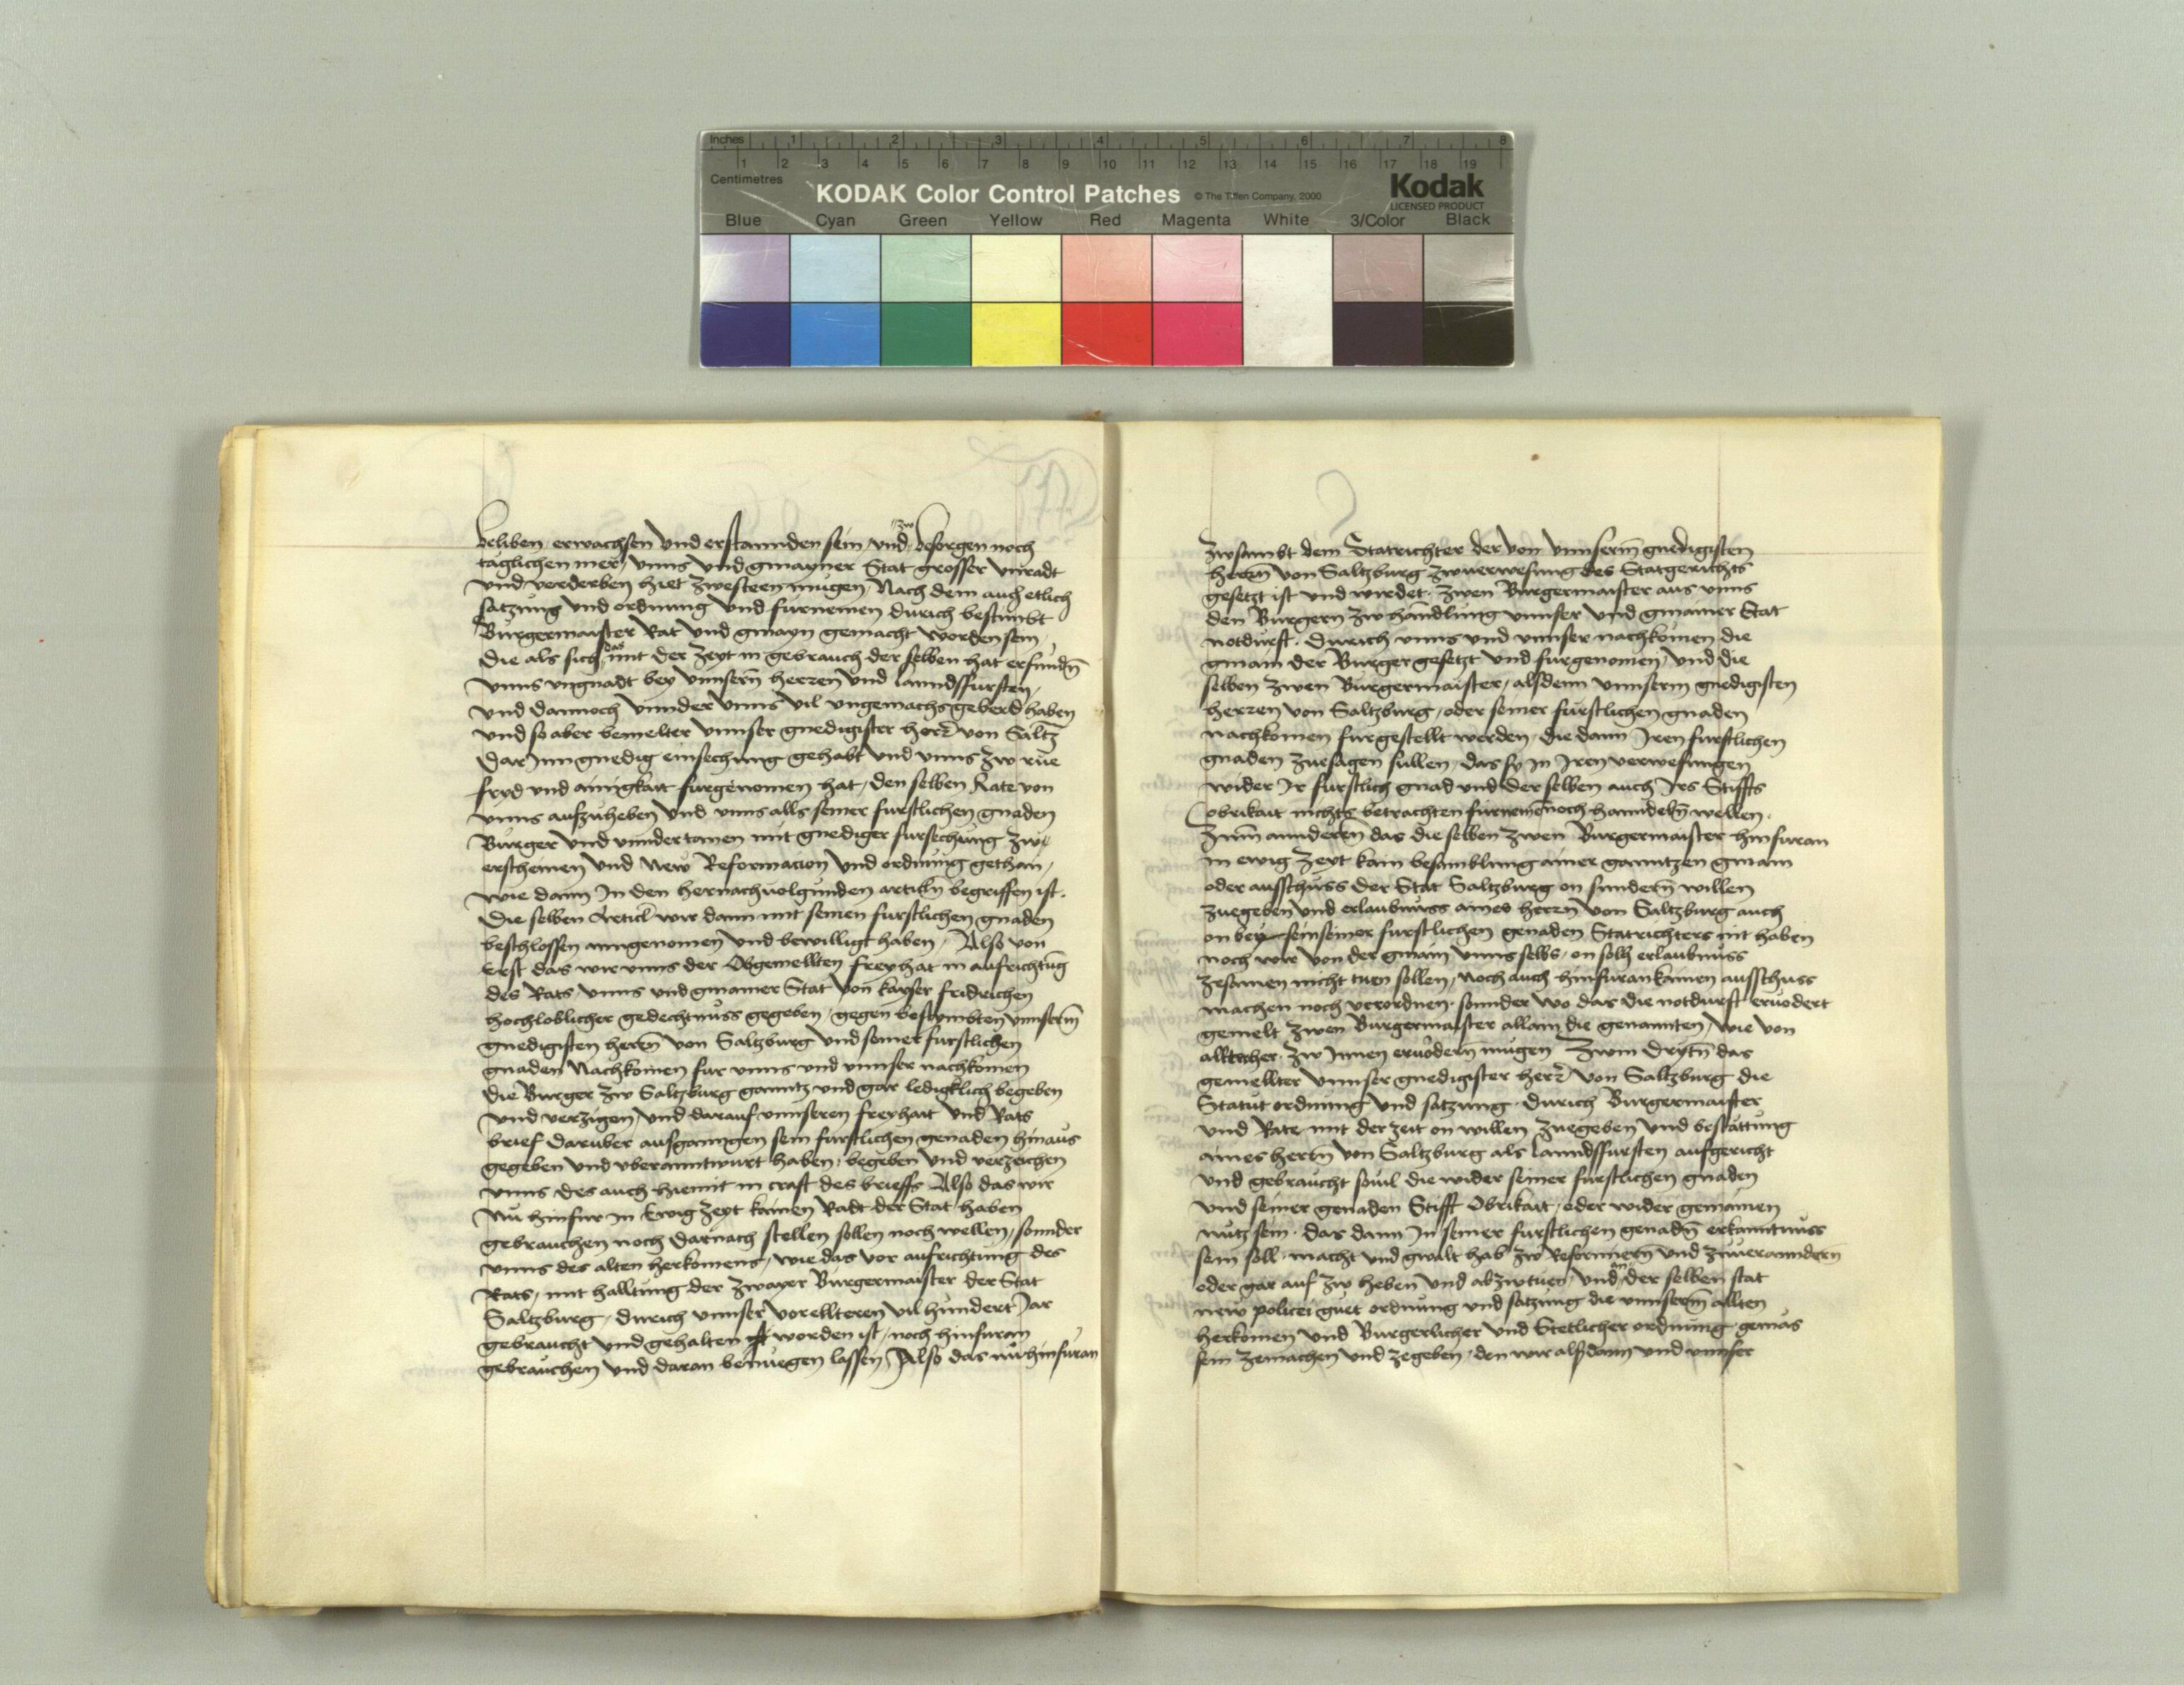 Inches 1 2 3 4 5 6 7 8
1 2 3 4 5 6 7 8 9 10 11 12 13 14 15 16 17 18 19
Centimetres
KODAK Color Control Patches © The Tiffen Company, 2000 Kodak
LICENSED PRODUCT
Blue Cyan Green Yellow Red Magenta White 3/Color Black
beliben erwachsen vnd erstannden sein, vnd zw besorgen noch
täglichen mer, vnns vnd gmayner Stat grosser vnradt
vnd verderben hiet zwesteen mugen, Nach dem auch etlich
satzung vnd ordnung vnd furnemen durich bestimbt
Burgermaister Rat vnd gmayn gemacht worden sein
die als sich das mit der Zeyt in gebrauch der selben hat erfundn̄
vnns vngnadt bey vnnserm̄ herren vnd lanndsfursten,
vnd dannoch vnnder vnns vil vngemachs geberd haben
vnd so aber bemelter vnnser gnedigister herr von Saltz̄
dar Inn gnedig einsechung gehabt vnd vnns zw rue
fryd vnd ainigkait furgenomen hat, den selben Rate von
vnns aufzuheben vnd vnns alls seiner furstlichen gnaden
Burger vnd vnndertanen mit gnediger fursechung zw
erscheinen vnd New Reformacion vnd ordnung gethan,
wie dann In den hernachuolgunden artikln begriffen ist.
die selben Articl wir dann mit seinen furstlichen gnaden
beschlossen anngenomen vnd bewilligt haben, Also von
Erst das wir vnns der Obgemellten freyhait in aufrichtūg
des Rats vnns vnd gmainer Stat von kayser fridrichen
hochloblicher gedechtnuss gegeben, gegen bestymbten vnnserm̄
gnedigisten herrn̄ von Saltzburg vnd seiner furstlichen
gnaden Nachkomen fur vnns vnd vnnser nachkomen
die Burger zw Saltzburg ganntz vnd gar ledigklich begeben
vnd verzigen, vnd darauf vnnseren freyhait vnd Rats
brief daruber ausganngen sein furstlichen genaden hinaus
gegeben vnd vberanntwurt haben, begeben vnd verzeichen
vnns des auch hiemit in craft des brieffs Also das wir
Nu hinfur in Ewig Zeyt kainen Radt der Stat haben
gebrauchen noch darnach stellen sollen noch wellen, sonnder
vnns des alten herkomens, wie das vor aufrichtung des
Rats, mit halltung der zwayer Burgermaister der Stat
Saltzburg, durich vnnser vorellteren vil hundert Jar
gebraucht vnd gehalten worden ist, noch hinfuran
gebrauchen vnd daran benuegen lassen, Also das nu hinfuran
Zwsambt dem Statrichter der von vnnserm̄ gnedigisten
herrn̄ von Saltzburg zwuerwesung des Statgerichts
gesetzt ist vnd wirdet, zwen Burgermaister aus vnns
den Burgern zw hanndlung vnnser vnd gmainer Stat
notdurft, durich vnns vnd vnnser nachkomen die
gmain der Burger gesetzt vnd furgenomen, vnd die
selben zwen Burgermaister, alsdenn vnnserm gnedigisten
herren von Saltzburg, oder seiner furstlichen gnaden
nachkomen furgestellt werden, die dann Iren furstlichen
gnaden zuesagen sullen, das sy in Iren verwesungen
wider Ir furstlich gnad vnd der selben auch Irs Stiffts
obrikait nichts betrachten furnemē noch hanndeln̄ wellen.
Zum̄ annderen̄ das die selben zwen Burgermaister hinfuran
in ewig Zeyt kain besamblung ainer ganntzen gmain
oder ausschuss der Stat Saltzburg on sundern̄ willen
zuegeben vnd erlaubnuss aines herrn von Saltzburg auch
on bey sein seiner furstlichen genaden Statrichters nit haben
noch wir von der gmain vnns selbs, on solh erlaubnuss
zesamen nicht tuen sollen, noch auch hinfuran kainen ausschuss
machen noch verordnen, sonnder wo das die notdurft eruodert
gemelt zwen Burgermaister allain, die genannten, wie von
allter her, zw Innen eruodern̄ mugen Zwm drytn̄ das
gemellter vnnser gnedigister herr von Saltzburg die
Statut ordnung vnd satzung, durich Burgermaister
vnd Rate mit der zeit on willen zuegeben vnd bestättung
aines herrn̄ von Saltzburg als lanndsfursten aufgericht
vnd gebraucht souil die wider seiner furstlichen gnaden
vnd seiner genaden Stifft Obrikait, oder wider gemainen
nutz sein, das dann In seiner furstlichen genadn̄ erkanntnuss
sein soll, macht vnd gwalt hab zw Reformiern̄ vnd zuuerannderrn
oder gar auf zw heben vnd abzwtuen, vnd an der selben stat
new policei guet ordnung vnd satzung die vnnserm̄ allten
herkomen vnd Burgerlicher vnd Stetlicher ordnung gemäs
sein zemachen vnd zegeben, den wir alsdann vnd vnnser